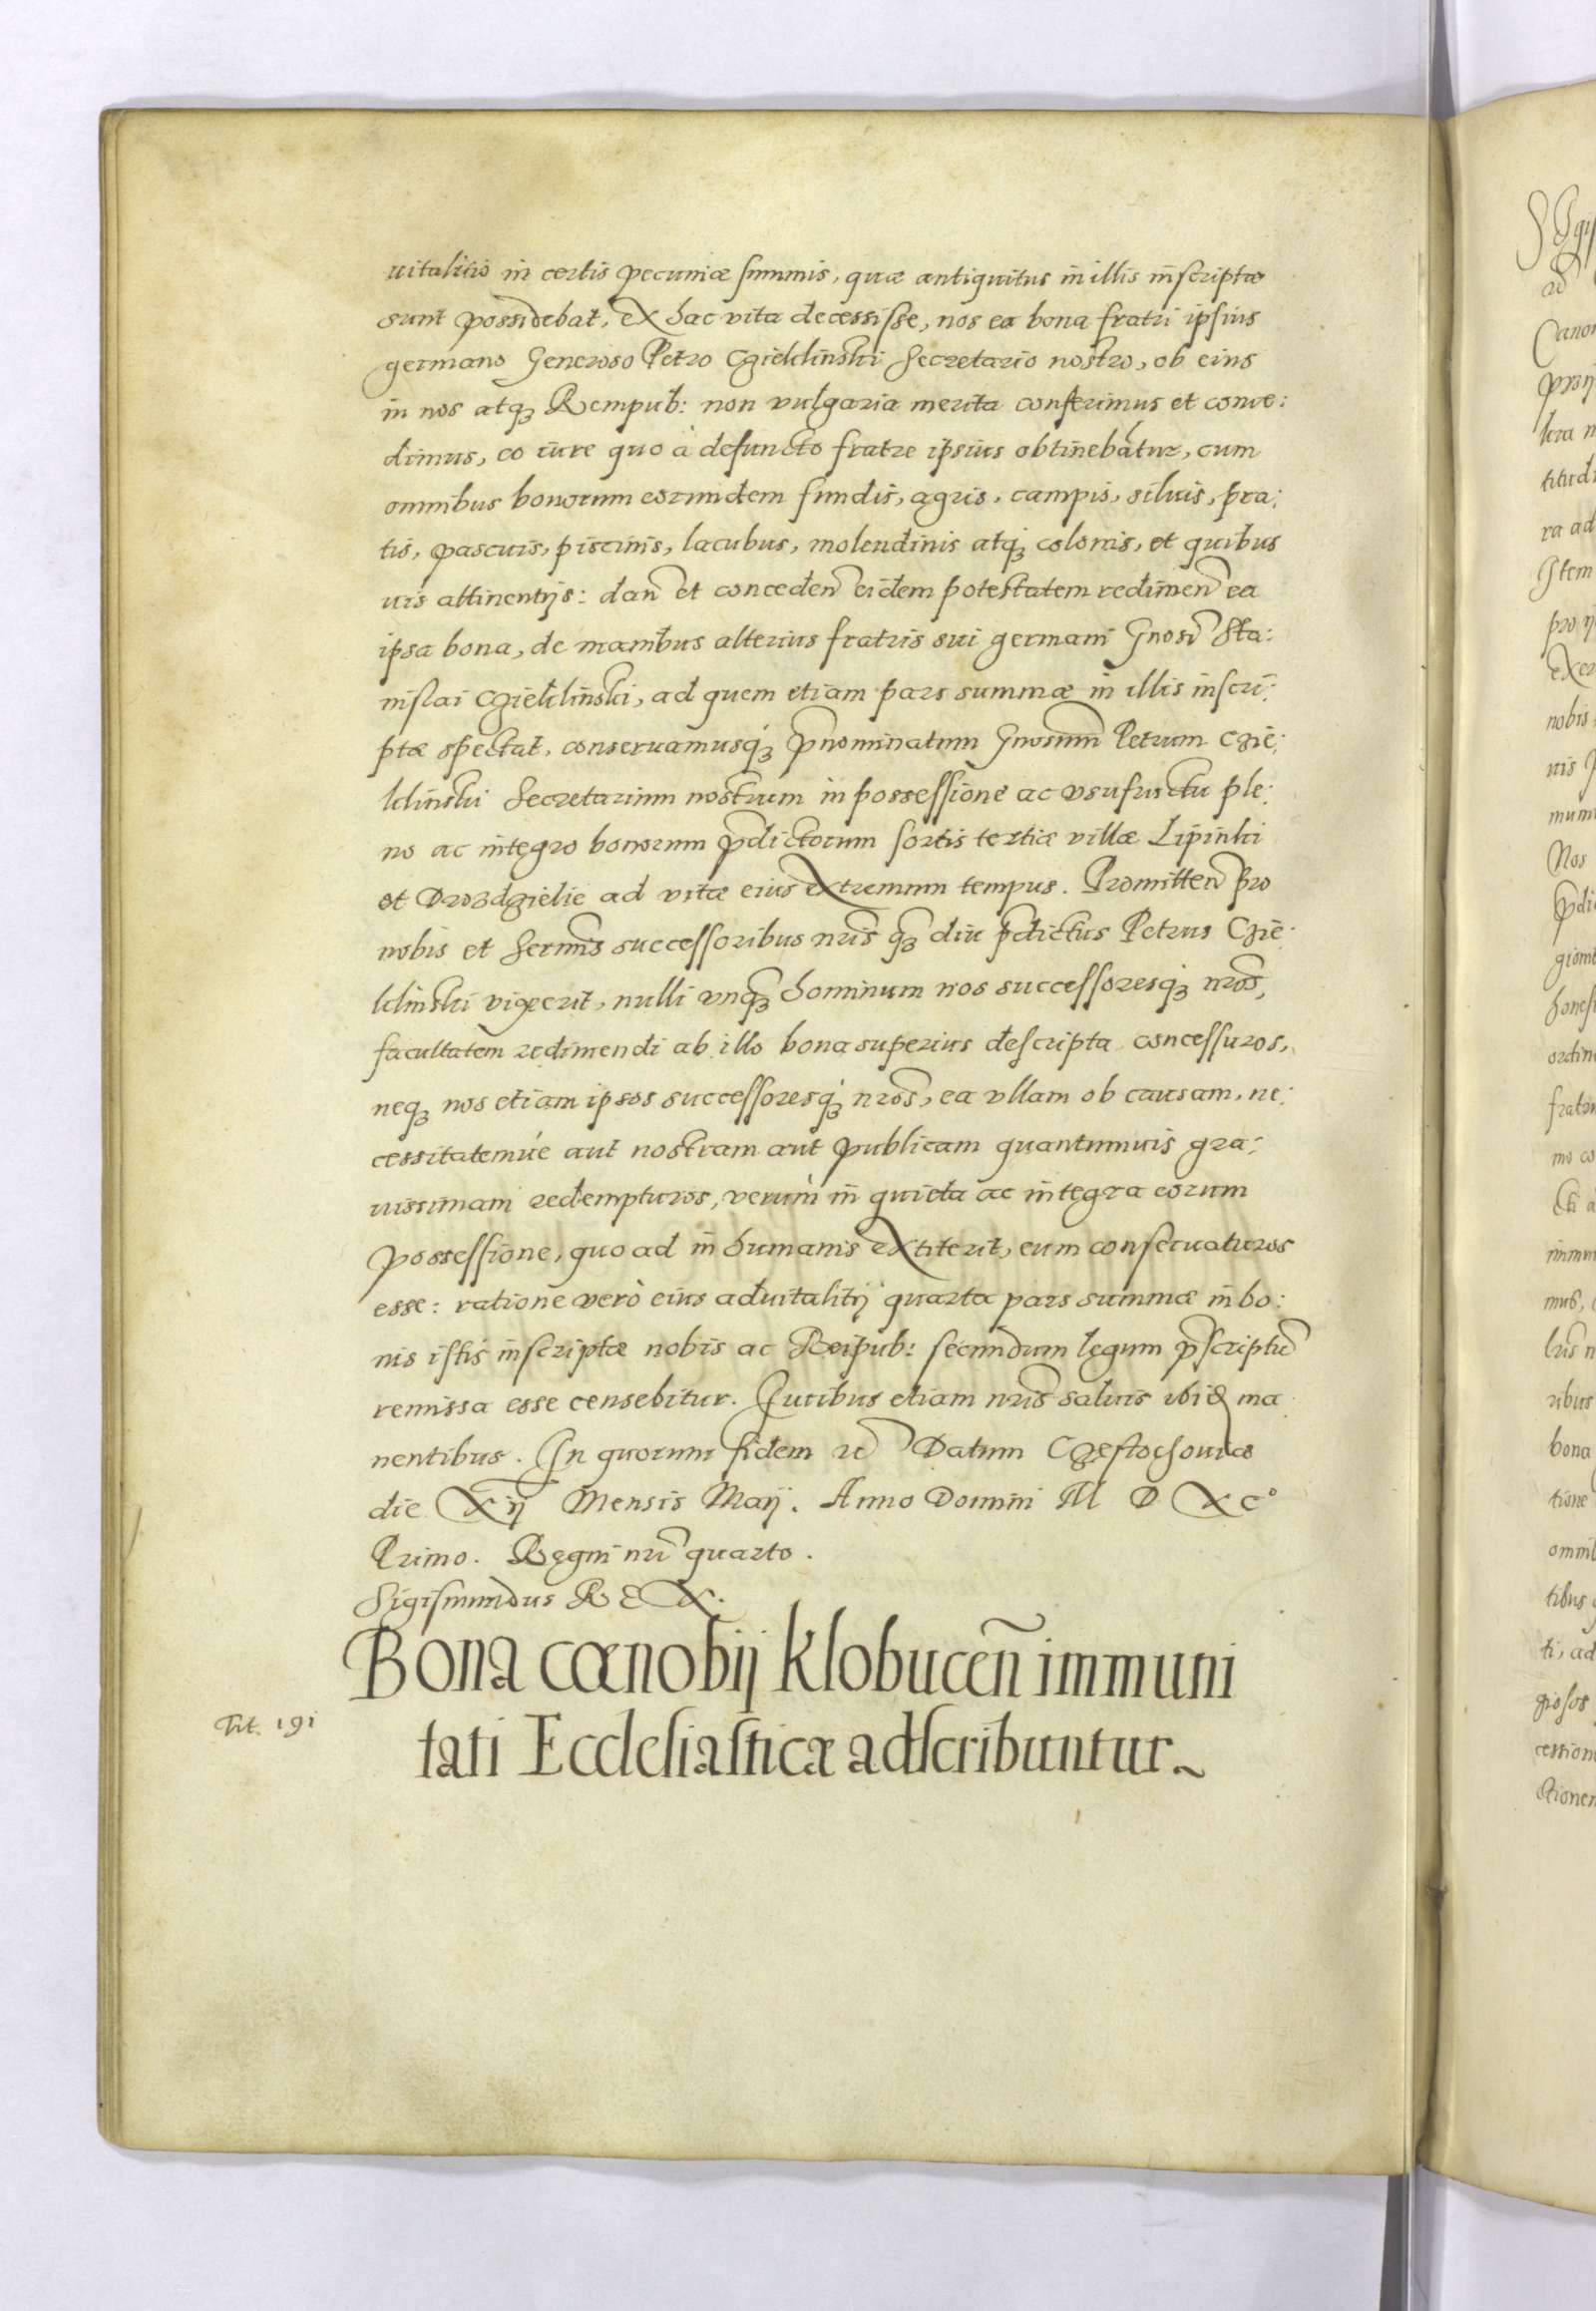 uitalitio in certis pecuniæ summis, quæ antiquitus in illis inscriptæ
sunt possidebat, ex hac vita decessisse, nos ea bona fratri ipsius
germano Generoso Petro Cgieklinski Secretario nostro, ob eius
in nos atq; Rempub: non vulgaria merita conferimus et conce:
dimus, eo iure quo à defuncto fratre ipsius obtinebatur, cum
omnibus bonorum eorundem fundis, agris, campis, siluis, pra:
tis, pascuis, piscinis, lacubus, molendinis atq; colonis, et quibus
uis attinentijs: dan̄ et conceden̄ eidem potestatem redimen̄ ea
ipsa bona, de manibus alterius fratris sui germani Gnosi Sta:
nislai Cgieklinski, ad quem etiam pars summæ in illis inscri:
ptæ spectat, conseruamusq; p̄nominatum Gnosum Petrum Czie:
klinski Secretarium nostrum in possessione ac vsufructu ple:
no ac integro bonorum p̄dictorum sortis tertiæ villæ Lipinki
et Drozdgielie ad vitæ eius extremum tempus. Promitten̄ pro
nobis et Sermis successoribus nr̄is q; diu p̄dictus Petrus Czie:
klinski vixerit, nulli vnq; hominum nos successoresq; nr̄os,
facultatem redimendi ab illo bona superius descripta concessuros,
neq; nos etiam ipsos successoresq; nr̄os, ea vllam ob causam, ne:
cessitatemúe aut nostram aut publicam quantumuis gra:
uissimam redempturos, verùm in quieta ac integra eorum
possessione, quo ad in humanis extiterit, eum conseruaturos
esse: ratione verò eius aduitalitij quarta pars summæ in bo:
nis istis inscriptæ nobis ac Reipub: secundum legum p̄scriptū
remissa esse censebitur. Iuribus etiam nr̄is saluis ibidē ma
nentibus. In quorum fidem rē Datum Cgęstochouiæ
die Xij Mensis Maij. Anno Domini M D XC°
Primo. Regni nr̄i quarto.
Sigismundus R E X.
Bona cœnobij Klobucen̄ immuni
Tit. 191
tati Ecclesiasticæ adscribuntur.